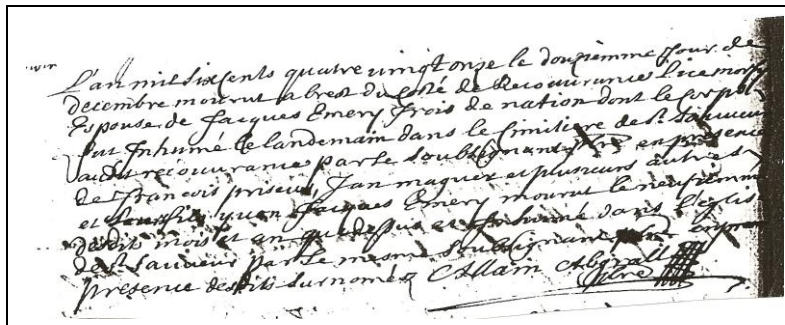 L'an mil six cents quatre vingt onze le douziemme jour de
decembre mourut a brest du costé de Recouvrance lice mory
Espouse de Jacques Emery Irois de nation dont le corps
fut Inhumé le landemain dans le simitiere de St Sauveur
audit recouvrance par le soubsignant en presence
de françois priseur, Jan maguer et plusieurs autres
et yven Jacques Emery mourut le neufiemme
desdit mois et an que dessus et Inhumé dans l'eglis
de St Sauveur par le mesme soubsignant
presence desdits surnoméz Allain Abgrall